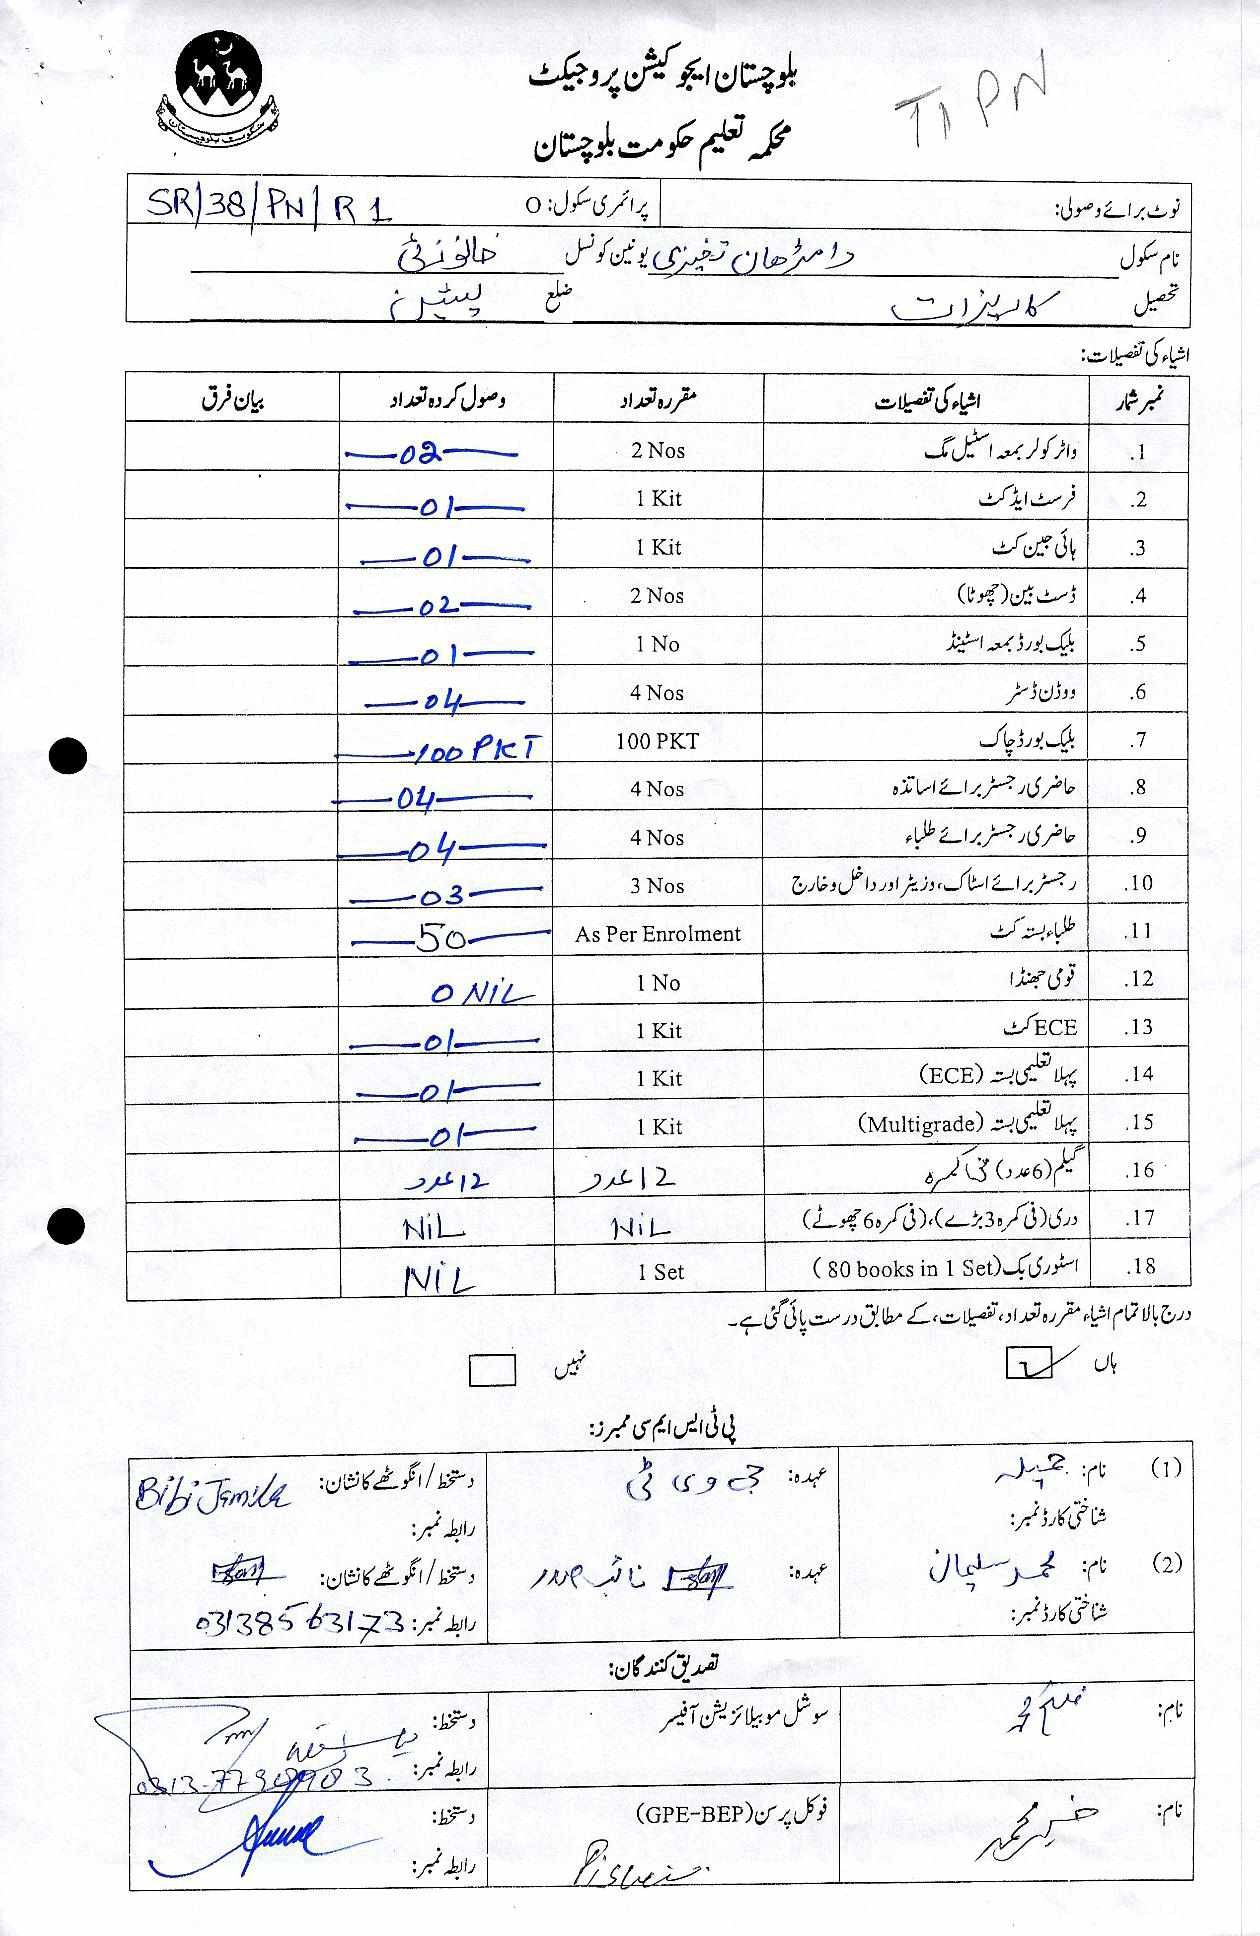 بلوچستان ایجوکیشن پروجیکٹ
T1 PN
محکمہ تعلیم حکومت بلوچستان
حکومت بلوچستان
نوٹ برائے وصولی: پرائمری سکول: O SR/38/PN/R1
نام سکول یونین کونسل
تحصیل کاریزات ضلع پشین
اشیاء کی تفصیلات:
نمبر شمار اشیاء کی تفصیلات مقررہ تعداد وصول کردہ تعداد بیان فرق
1. واٹر کولر بمعہ اسٹیل مگ 2 Nos 02
2. فرسٹ ایڈ کٹ 1 Kit 01
3. ہائی جین کٹ 1 Kit 01
4. ڈسٹ بین (چھوٹا) 2 Nos 02
5. بلیک بورڈ بمعہ اسٹینڈ 1 No 01
6. ووڈن ڈسٹر 4 Nos 04
7. بلیک بورڈ چاک 100 PKT 100 PKT
8. حاضری رجسٹر برائے اساتذہ 4 Nos 04
9. حاضری رجسٹر برائے طلباء 4 Nos 04
10. رجسٹر برائے اسٹاک، وزیٹر اور داخل و خارج 3 Nos 03
11. طلباء بستہ کٹ As Per Enrolment 50
12. قومی جھنڈا 1 No 0 NiL
13. ECE کٹ 1 Kit 01
14. پہلا تعلیمی بستہ (ECE) 1 Kit 01
15. پہلا تعلیمی بستہ (Multigrade) 1 Kit 01
16. گیلم (6 عدد) فی کمرہ 12 عدد 12 عدد
17. دری (فی کمرہ 3 بڑے)، (فی کمرہ 6 چھوٹے) NiL NiL
18. اسٹوری بک (80 books in 1 Set) 1 Set NiL
درج بالا تمام اشیاء مقررہ تعداد، تفصیلات، کے مطابق درست پائی گئی ہے۔
ہاں نہیں
پی ٹی ایس ایم سی ممبرز:
(1) نام: جمیلہ عہدہ: جے وی ٹی دستخط / انگوٹھے کا نشان: Bibi Jamila
شناختی کارڈ نمبر: رابطہ نمبر:
(2) نام: محمد سلیمان عہدہ: نائب صدر دستخط / انگوٹھے کا نشان:
شناختی کارڈ نمبر: رابطہ نمبر: 03138563173
تصدیق کنندگان:
نام: سوشل موبیلائزیشن آفیسر دستخط:
رابطہ نمبر:
نام: فوکل پرسن (GPE-BEP) دستخط:
رابطہ نمبر: